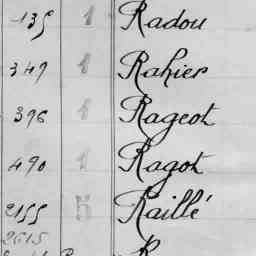 135 1 Radou
349 1 Rahier
396 1 Rageot
490 1 Ragot
2155 5 Raillé
2615